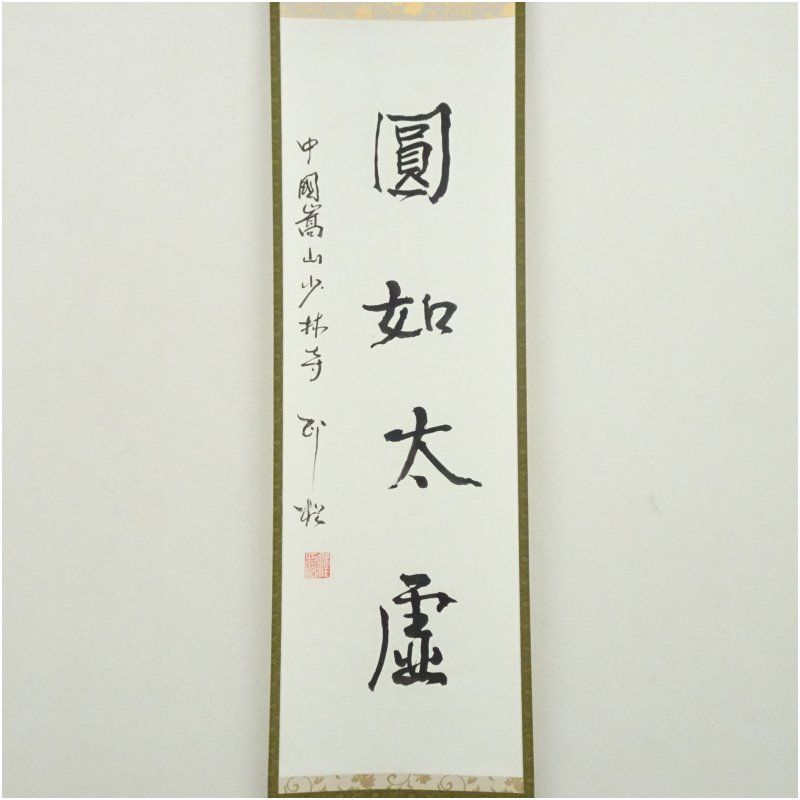 圓如太虛
中國嵩山少林寺